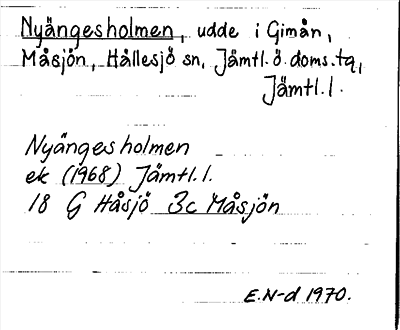 Nyängesholmen, udde i Gimån,
Måsjön, Hållesjö sn, Jämtl. ö. doms. tg,
Jämtl. l.
Nyängesholmen
ek (1968) Jämtl. l.
18 G Håsjö 3c Måsjön
E. N-d 1970.